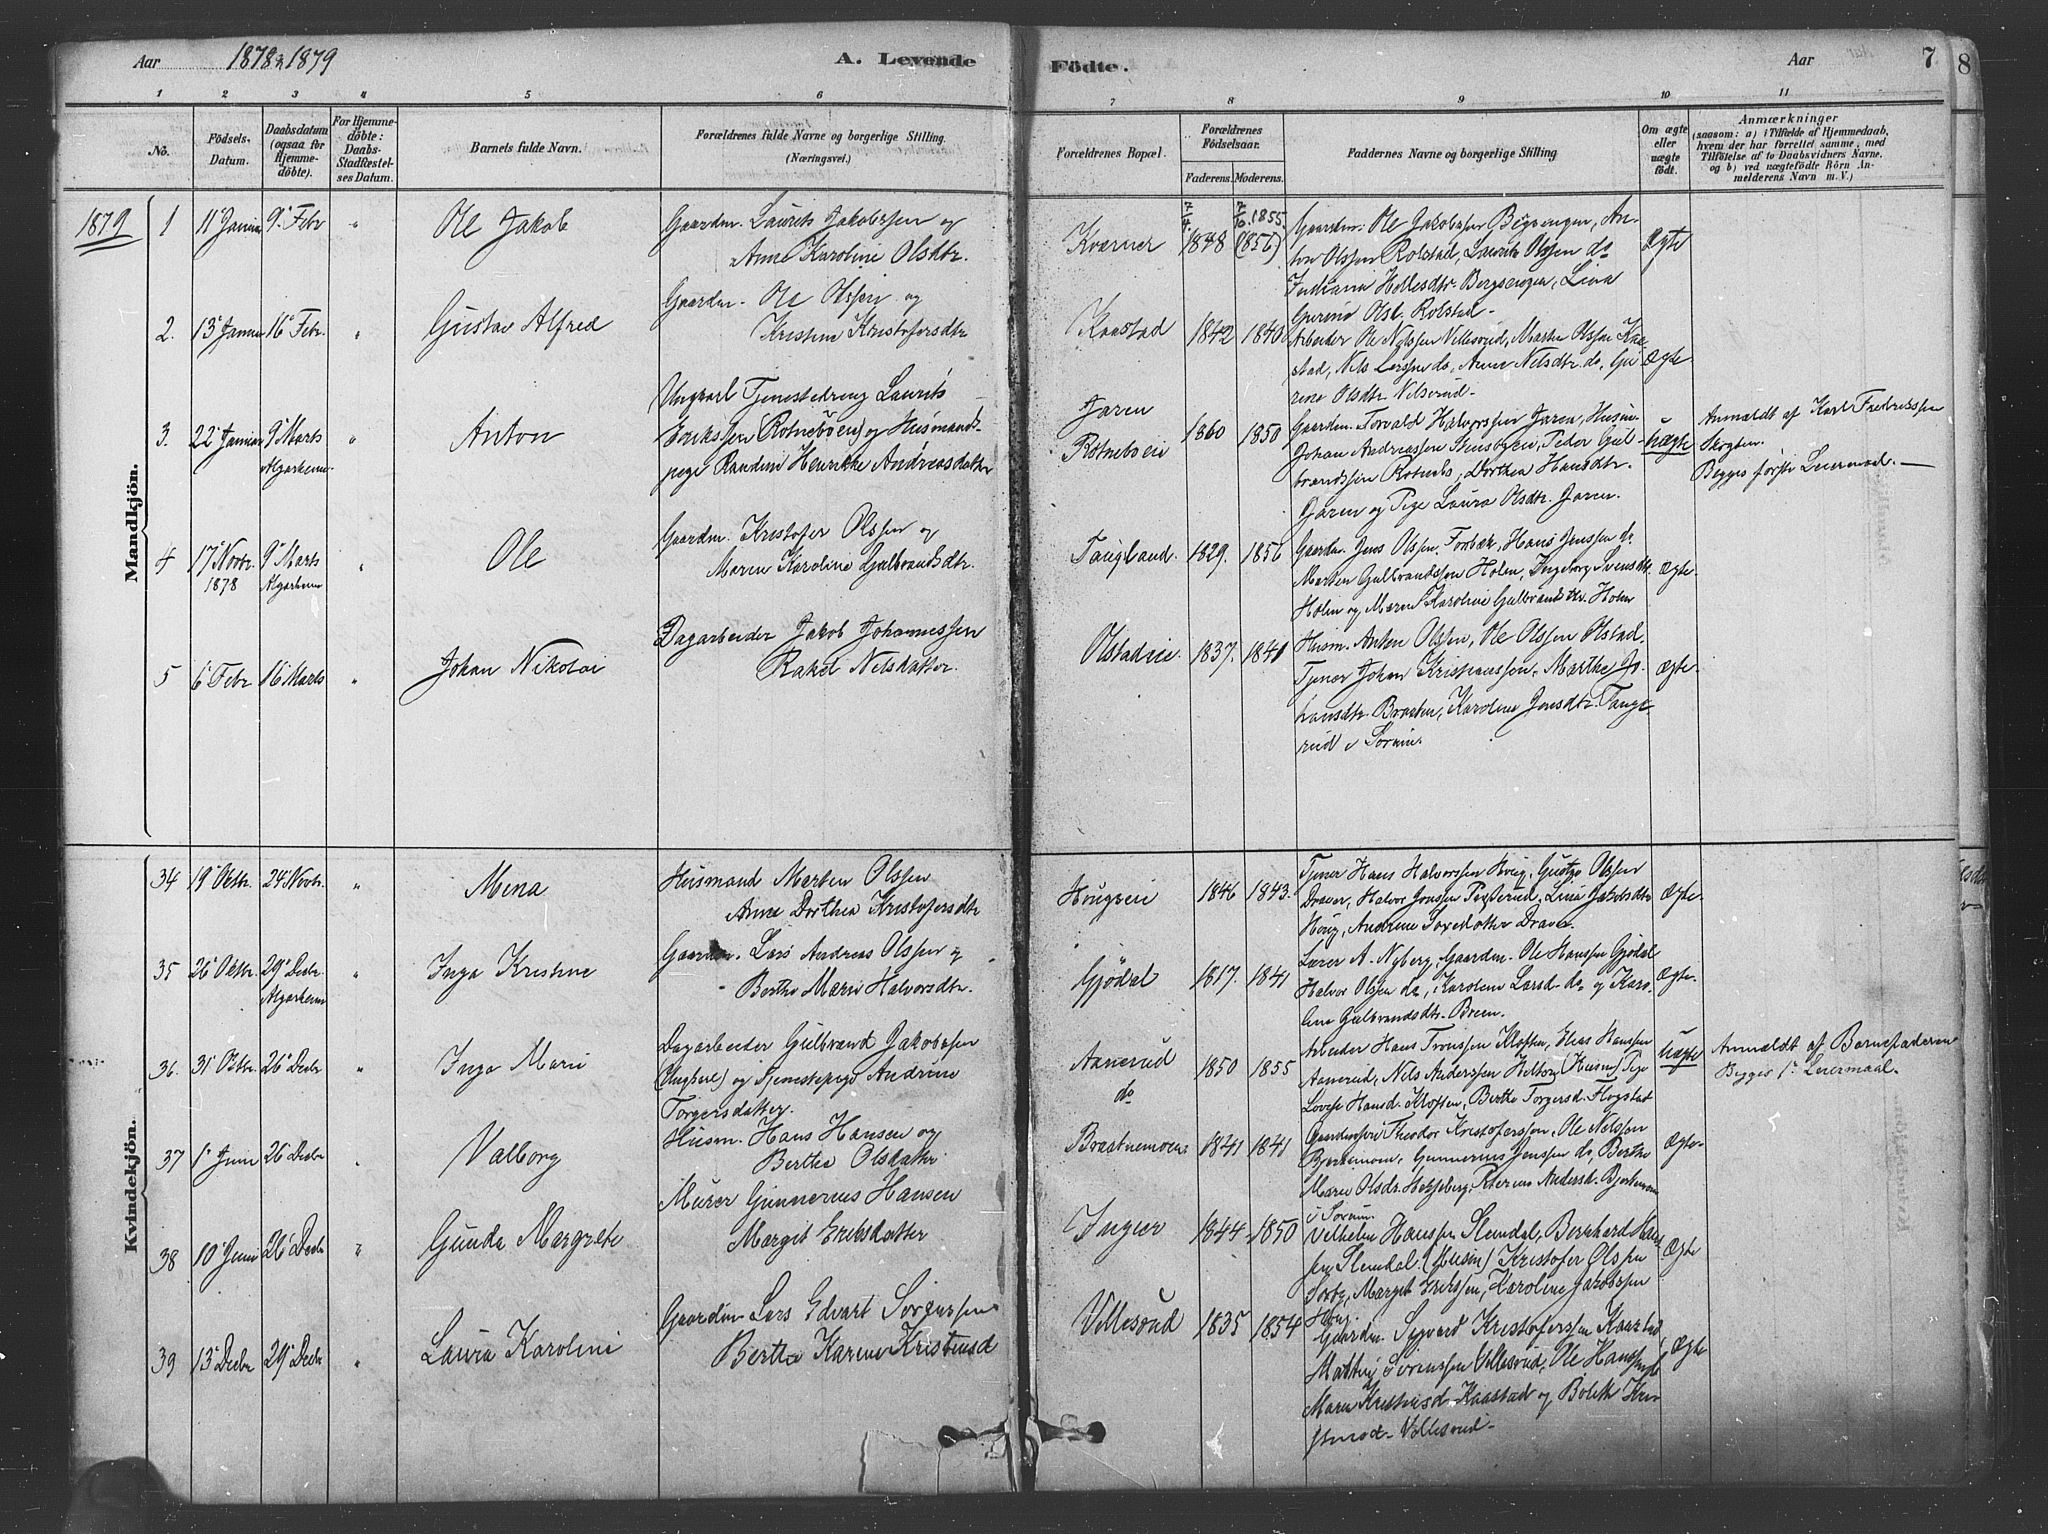 Aar 1878 & 1879 A. Levende Födte. Aar 7 8
1 2 3 4 5 6 7 8 9 10 11
No.
Födsels-
Datum.
Daabsdatum
(ogsaa for
Hjemme-
döbte).
For Hjemme-
döbte:
Daabs-
Stadfæstel-
ses Datum.
Barnets fulde Navn.
Forældrenes fulde Navne og borgerlige Stilling.
(Næringsvei.)
Forældrenes Bopæl.
Forældrenes
Födselsaar.
Faderens. Moderens.
Faddernes Navne og borgerlige Stilling
Om ægte
eller
uægte
födt.
Anmærkninger
(saasom: a) i Tilfælde af Hjemmedaab,
hvem der har forrettet samme, med
Tilföielse af to Daabsvidners Navne,
og b) ved uægtefödte Börn An-
melderens Navn m. V.)
Mandkjön.
1879
1 11' Januar 9' Febr " Ole Jakob
Gaardm. Laurits Jakobssen og
Anne Karoline Olsdtr.
Kværner 7/4 1848 7/10 1855 (1856)
Gaardm. Ole Jakobssen Bergsengen, An-
ton Olssen Rolstad, Laurits Olssen do
Indiana Hellesdtr. Bergsengen, Lina
Gurine Olsd. Rolstad.
Ægte
2. 13' Januar 16' Febr. " Gustav Alfred
Gaardm. Ole Olssen og
Kristine Kristofersdtr
Kaastad 1842 1840
Arbeider Ole Nilssen Villesrud, Marten Olssen Kaa-
stad, Nils Larssen do, Anne Nilsdtr. do, Gu-
rine Olsdtr. Nilserud.
Ægte
3. 22' Januar 9' Marts Algarheim " Anton
Ungkarl Tjenestedreng Laurits
Erikssen (Rotnebøen) og Husmands-
pige Randini Henrikke Andreasdatter
Jaren
Rotnebøen 1860 1850
Gaardm. Torvald Halvorssen Jaren, Husm.
Johan Andreassen, Peder Gul-
brandssen Rotnes, Dorthea Hansdtr.
Jaren og Pige Laura Olsdtr. Jaren.
uægte
Anmeldt af Karl Fredrikssen
Skogten.
Begges første Leiermaal.
4 17' Novbr. 1878 9' Marts Algarheim " Ole
Gaardm. Kristofer Olssen og
Maren Karoline Gulbrandsdtr.
Taugland. 1829. 1856
Gaardm. Jens Olssen Forbæk, Hans Jenssen do
Marten Gulbrandssen Holen, Ingeborg Svensdtr.
Holen og Maren Karoline Gulbrandsdtr. Holen
Ægte
5 6' Febr 16' Marts " Johan Nikolai
Dagarbeider Jakob Johannessen
Rakel Nilsdatter.
Olstadeie. 1837. 1841
Husm. Anton Olssen, Ole Olssen Olstad.
Tjener Johan Kristianssen, Marthe Jo-
hansdtr. Braaten, Karoline Jensdtr. Tange-
rud i Sørum.
Ægte
Kvindekjön.
34 19' Oktbr. 24' Novbr. " Mina
Husmand Marten Olssen
Anne Dorthea Kristofersdtr
Hougseie 1846 1843.
Tjener Hans Halvorssen Houg, Gustav Olssen
Draver, Halvor Jonssen Teigserud, Lina Jakobsdtr
Houg, Andrine Toresdatter Draver.
Ægte
35 26' Oktbr. 29' Decbr. Algarheim " Inga Kristine
Gaardm. Lars Andreas Olssen og
Berthe Marie Halvorsdtr.
Gjødal 1817. 1841
Lærer A. Nyberg, Gaardm. Ole Hanssen Gjødal
Halvor Olssen do, Karoline Larsd. do og Karo-
line Gulbrandsdtr. Breen.
Ægte
36. 31' Oktbr. 26' Decbr " Inga Marie
Dagarbeider Gulbrand Jakobssen
(Ungkarl) og Tjenestepige Andrine
Torgersdatter.
Aanerud
do 1850 1855
Arbeider Hans Hanssen Kloften, Elias Hanssen
Aanerud, Nils Anderssen Helton (Husm) Pige
Lovise Hansd. Kloften, Berthe Torgersd. Flogstad
Uægte
Anmældt af Barnefaderen
Begges 1' Leiermaal.
37 1' Juni 26' Decbr " Valborg
Husm. Hans Hansen og
Berthe Olsdatter.
Braatnemoen 1841 1841
Theodor Kristoferssen, Ole Nilssen
Bjerkemoen, Gunnerius Jenssen do, Berthe
Marie Olsdr. Hexeberg, Andersd. Bjerkemoen
i Sørum.
Ægte
38 10' Juni 26' Decbr " Gunda Margrete
Murer Gunnerius Hansen
Margit Eriksdatter
Ingier 1844 1850
Vilhelm Hanssen Slemdal, Bernhard Hans-
sen Slemdal (Husm) Kristofer Olssen
Sørby, Margit Erikssen, Karoline Jakobssen
Houg.
Ægte
39 13' Decbr 29' Decbr " Laura Karoline
Gaardm. Lars Edvart Sørenssen
Berthe Karine Kristensd
Villesrud 1835 1854
Gaardm. Sigvard Kristoferssen Kaastad
Mathias Sørenssen Villesrud, Ole Hanssen do
Maren Kristensd Kaastad og Bolette Kri-
stensd. Villesrud.
Ægte